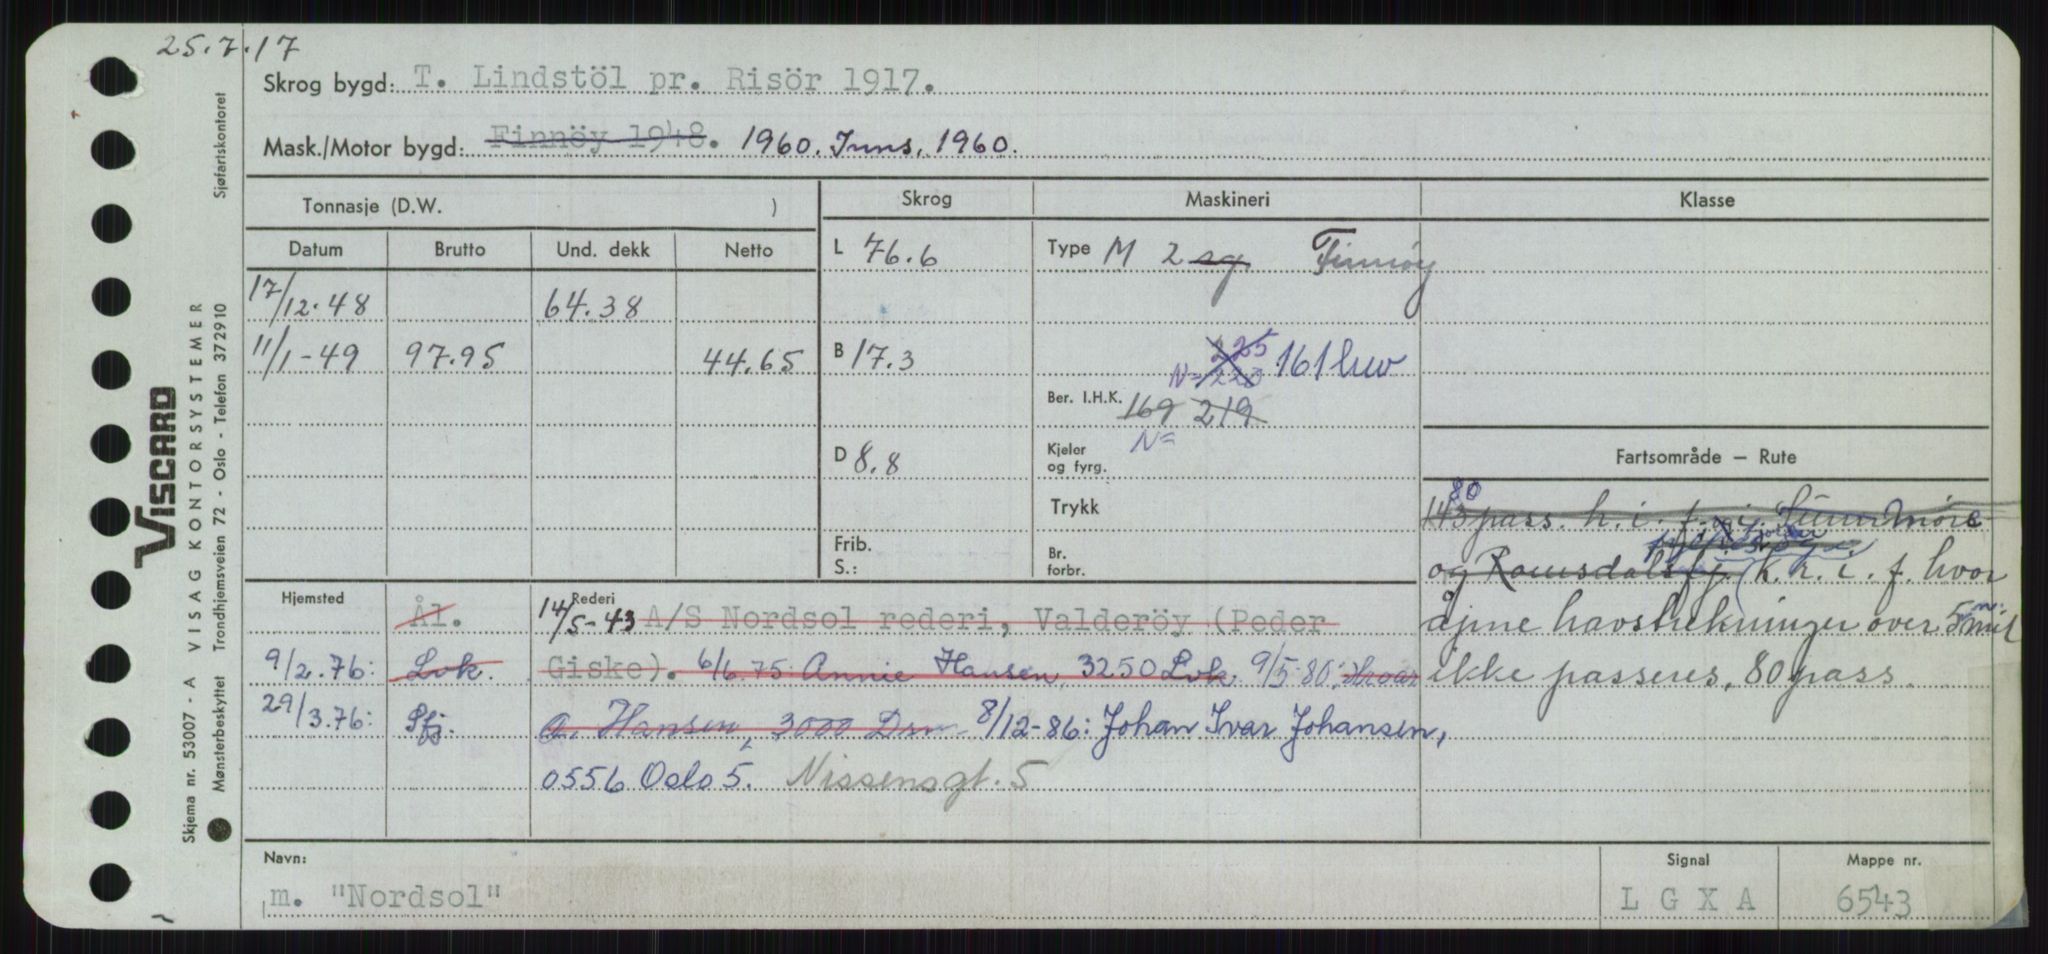 25.7.17
Skrog bygd: T. Lindstöl pr. Risör 1917.
Mask./Motor bygd: Finnöy 1948. 1960. Inns. 1960.
Tonnasje (D.W. )
Skrog
Maskineri
Klasse
Datum Brutto Und. dekk Netto
L 76.6
Type M 2 sg Finnøy
17/12.48 64.38
11/1-49 97.95 44.65
B 17.3
225
N= 220 161 kw
Ber. I.H.K. 169 219
N=
D 8.8
Kjeler
og fyrg.
Trykk
Frib.
S.:
Br.
forbr.
Fartsområde – Rute
80
143 pass. h.i.f. i Sunnmøre
og Romsdalsfj. k.h.i.f. hvor
åpne havstrekninger over 5 n. mil
ikke passeres, 80 pass.
Hjemsted
Rederi
Ål. 14/5-43 A/S Nordsol rederi, Valderöy (Peder
9/2.76: Lvk. Giske). 6/6.75 Annie Hansen, 3250 Lvk 9/5-80: Hroar
29/3.76: Sfj. A. Hansen, 3000 Drm 8/12-86: Johan Ivar Johansen,
0556 Oslo 5. Nissensgt. 5
Navn:
Signal
Mappe nr.
m. "Nordsol"
L G X A
6543
VISCARD
Skjema nr. 53007 - A VISAG KONTORSYSTEMER
Mønsterbeskyttet Trondhjemsveien 72 - Oslo - Telefon 372910 Sjøfartskontoret